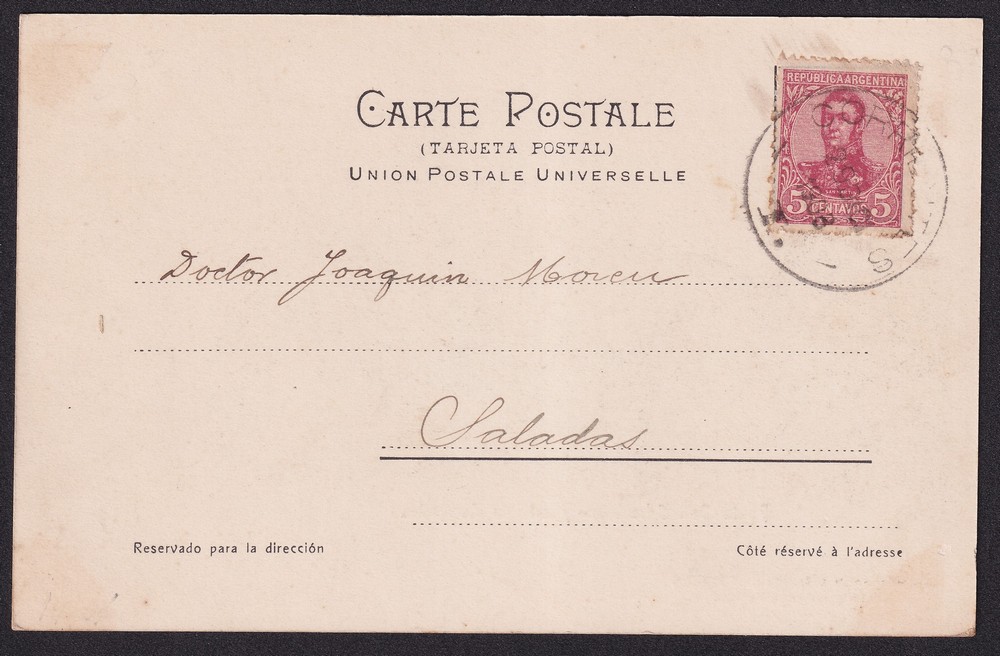 CARTE POSTALE
(TARJETA POSTAL)
UNION POSTALE UNIVERSELLE
REPÚBLICA ARGENTINA
5 CENTAVOS 5
Doctor Joaquin Moreu
Saladas
Reservado para la dirección
Côté réservé à l'adresse